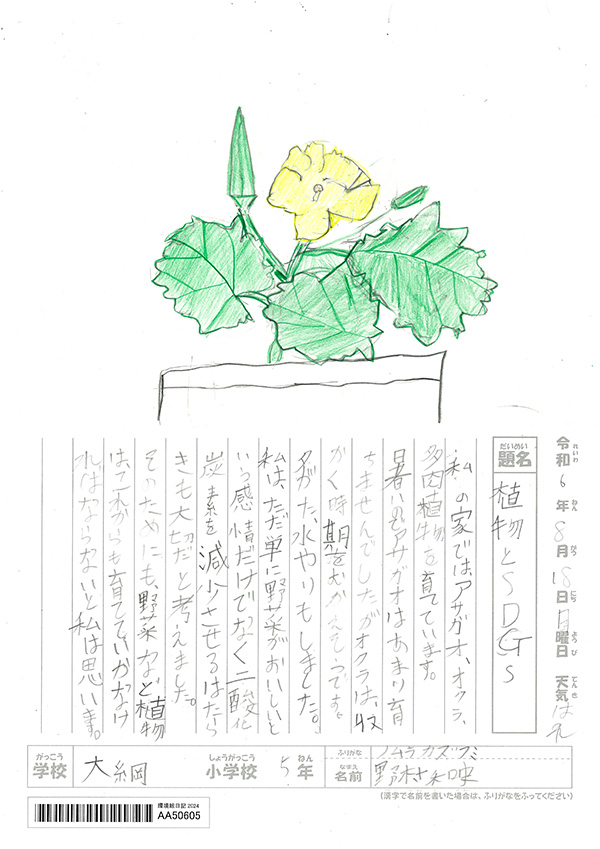 令和6年8月18日日曜日 天気はれ
れいわ ねん がつ にち ようび てんき
だいめい
題名
植物とSDGs
私の家ではアサガオ、オクラ、
多肉植物を育てています。
暑いのでアサガオはあまり育
ちませんでしたがオクラは、収
かく時期をむかえそうです。
夕がた、水やりもしました。
私は、ただ単に野菜がおいしいと
いう感情だけでなく二酸化
炭素を減少させるはたら
きも大切だと考えました。
そのためにも、野菜など植物
は、これからも育てていかなけ
ればならないと私は思います。
がっこう
学校
大綱
しょうがっこう
小学校
5年
ねん
ふりがな
ノムラカズフミ
なまえ
名前
野村和
(漢字で名前を書いた場合は、ふりがなをふってください)
環境絵日記 2024
AA50605